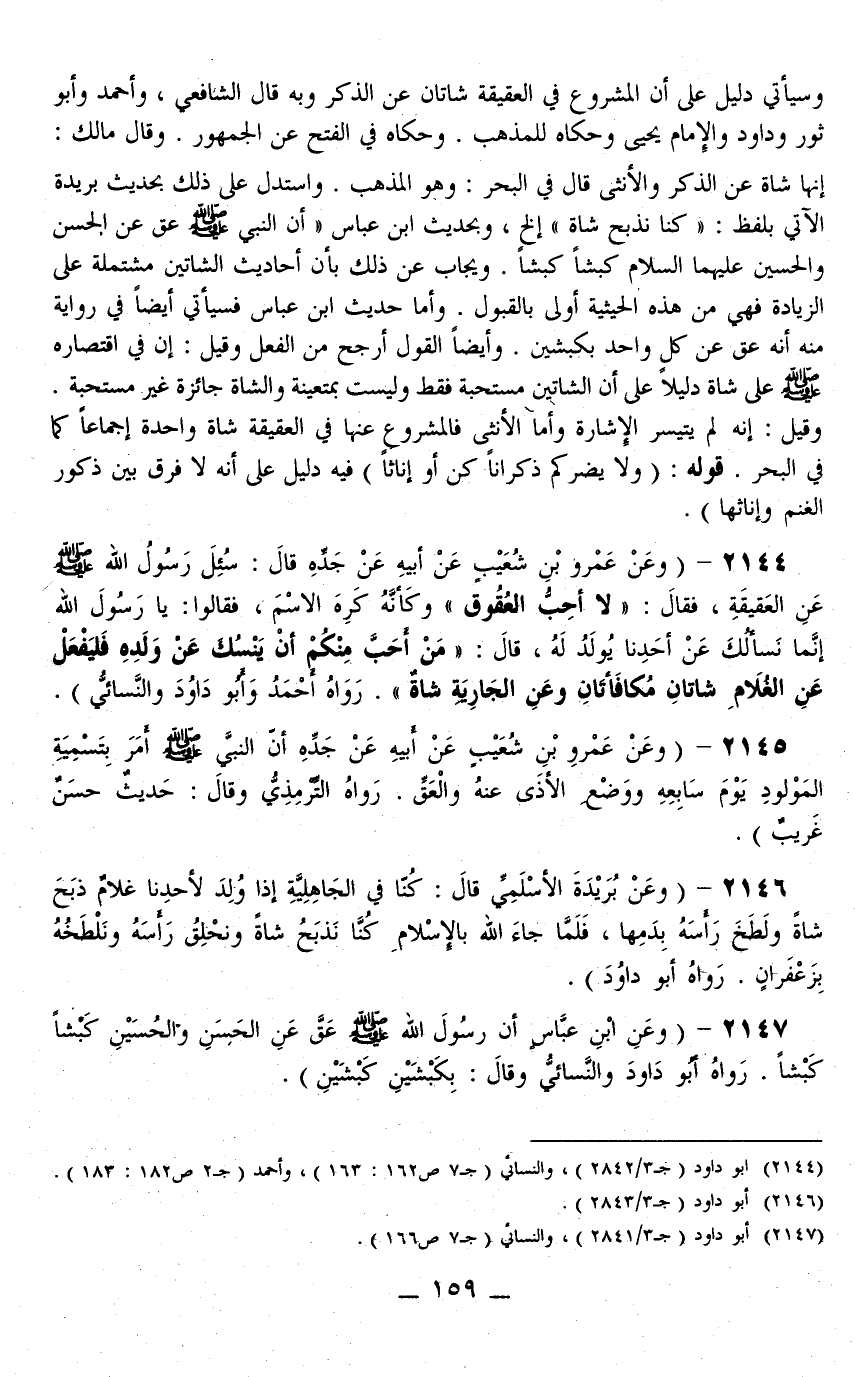 وسيأتي دليل على أن المشروع في العقيقة شاتان عن الذكر وبه قال الشافعي ، وأحمد وأبو
ثور وداود والإِمام يحيى وحكاه للمذهب . وحكاه في الفتح عن الجمهور . وقال مالك :
إنها شاة عن الذكر والأنثى قال في البحر : وهو المذهب . واستدل على ذلك بحديث بريدة
الآتي بلفظ : « كنا نذبح شاة » إلخ ، وبحديث ابن عباس « أن النبي ﷺ عق عن الحسن
والحسين عليهما السلام كبشاً كبشاً . ويجاب عن ذلك بأن أحاديث الشاتين مشتملة على
الزيادة فهي من هذه الحيثية أولى بالقبول . وأما حديث ابن عباس فسيأتي أيضاً في رواية
منه أنه عق عن كل واحد بكبشين . وأيضاً القول أرجح من الفعل وقيل : إن في اقتصاره
ﷺ على شاة دليلاً على أن الشاتين مستحبة فقط وليست بمتعينة والشاة جائزة غير مستحبة .
وقيل : إنه لم يتيسر الإِشارة وأما الأنثى فالمشروع عنها في العقيقة شاة واحدة إجماعاً كما
في البحر . قوله : ( ولا يضركم ذكراناً كن أو إناثاً ) فيه دليل على أنه لا فرق بين ذكور
الغنم وإناثها ) .
٢١٤٤ – ( وعَنْ عَمْرِو بْنِ شُعَيْبٍ عَنْ أبيهِ عَنْ جَدِّهِ قالَ : سُئِلَ رَسُولُ الله ﷺ
عَنِ العَقيقَةِ ، فقالَ : « لا أحِبُّ العُقُوق » وكَأنَّهُ كَرِهَ الاسْمَ ، فقالوا: يا رَسُولَ الله
إنَّما نَسألُكَ عَنْ أحَدِنا يُولَدُ لَهُ ، قالَ : « مَنْ أَحَبَّ مِنْكُمْ أنْ يَنْسُكَ عَنْ وَلَدِهِ فَلْيَفْعَلْ
عَنِ الغُلَامِ شاتانِ مُكافَأتَانِ وعَنِ الجَارِيَةِ شاةٌ » . رَوَاهُ أَحْمَدُ وَأبُو دَاوُدَ والنَّسائيُّ ) .
٢١٤٥ – ( وعَنْ عَمْرِو بْنِ شُعَيْبٍ عَنْ أَبيهِ عَنْ جَدِّهِ أنّ النبيَّ ﷺ أَمَرَ بِتَسْمِيَةِ
المَوْلودِ يَوْمَ سَابِعِهِ ووَضْعِ الأذَى عنهُ والْعَقِّ . رَواهُ التِّرْمِذِيُّ وقالَ : حَديثٌ حسَنٌ
غَريبٌ ) .
٢١٤٦ – ( وعَنْ بُرَيْدَةَ الأسْلَمِيِّ قالَ : كُنّا في الجَاهِليَّةِ إذا وُلِدَ لأحدِنا غلامٌ ذبَحَ
شاةً ولَطَخَ رَأْسَهُ بِدَمِها ، فَلَمَّا جاءَ الله بالإِسْلامِ كُنَّا نَذبَحُ شاةً ونحْلِقُ رَأْسَهُ ونَلْطَخُهُ
بِزَعْفَرانٍ . رَواهُ أبو داوُدَ ) .
٢١٤٧ – ( وعَنِ ابْنِ عبَّاسٍ أن رسُولَ الله ﷺ عَقَّ عَنِ الحَسَنِ والحُسَيْنِ كَبْشاً
كَبْشاً . رَواهُ أَبُو دَاودَ والنَّسائيُّ وقالَ : بِكَبْشَيْنِ كَبْشَيْنِ ) .
(٢١٤٤) ابو داود ( جـ٢٨٤٢/٣ ) ، والنسائي ( جـ٧ ص١٦٢ : ١٦٣ ) ، وأحمد ( جـ٢ ص١٨٢ : ١٨٣ ) .
(٢١٤٦) أبو داود ( جـ٢٨٤٣/٣ ) .
(٢١٤٧) أبو داود ( جـ٢٨٤١/٣ ) ، والنسائي ( جـ٧ ص١٦٦ ) .
— ١٥٩ —